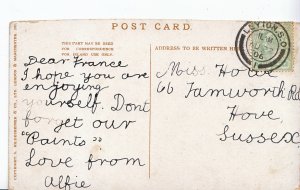 POST CARD.
THIS PART MAY BE USED
FOR CORRESPONDENCE
ADDRESS TO BE WRITTEN HERE
Dear France
I hope you are
enjoying
yourself. Dont
forget our
"Paints"
Love from
Alfie
Miss. Howe
66 Tamworth Rd
Hove,
Sussex